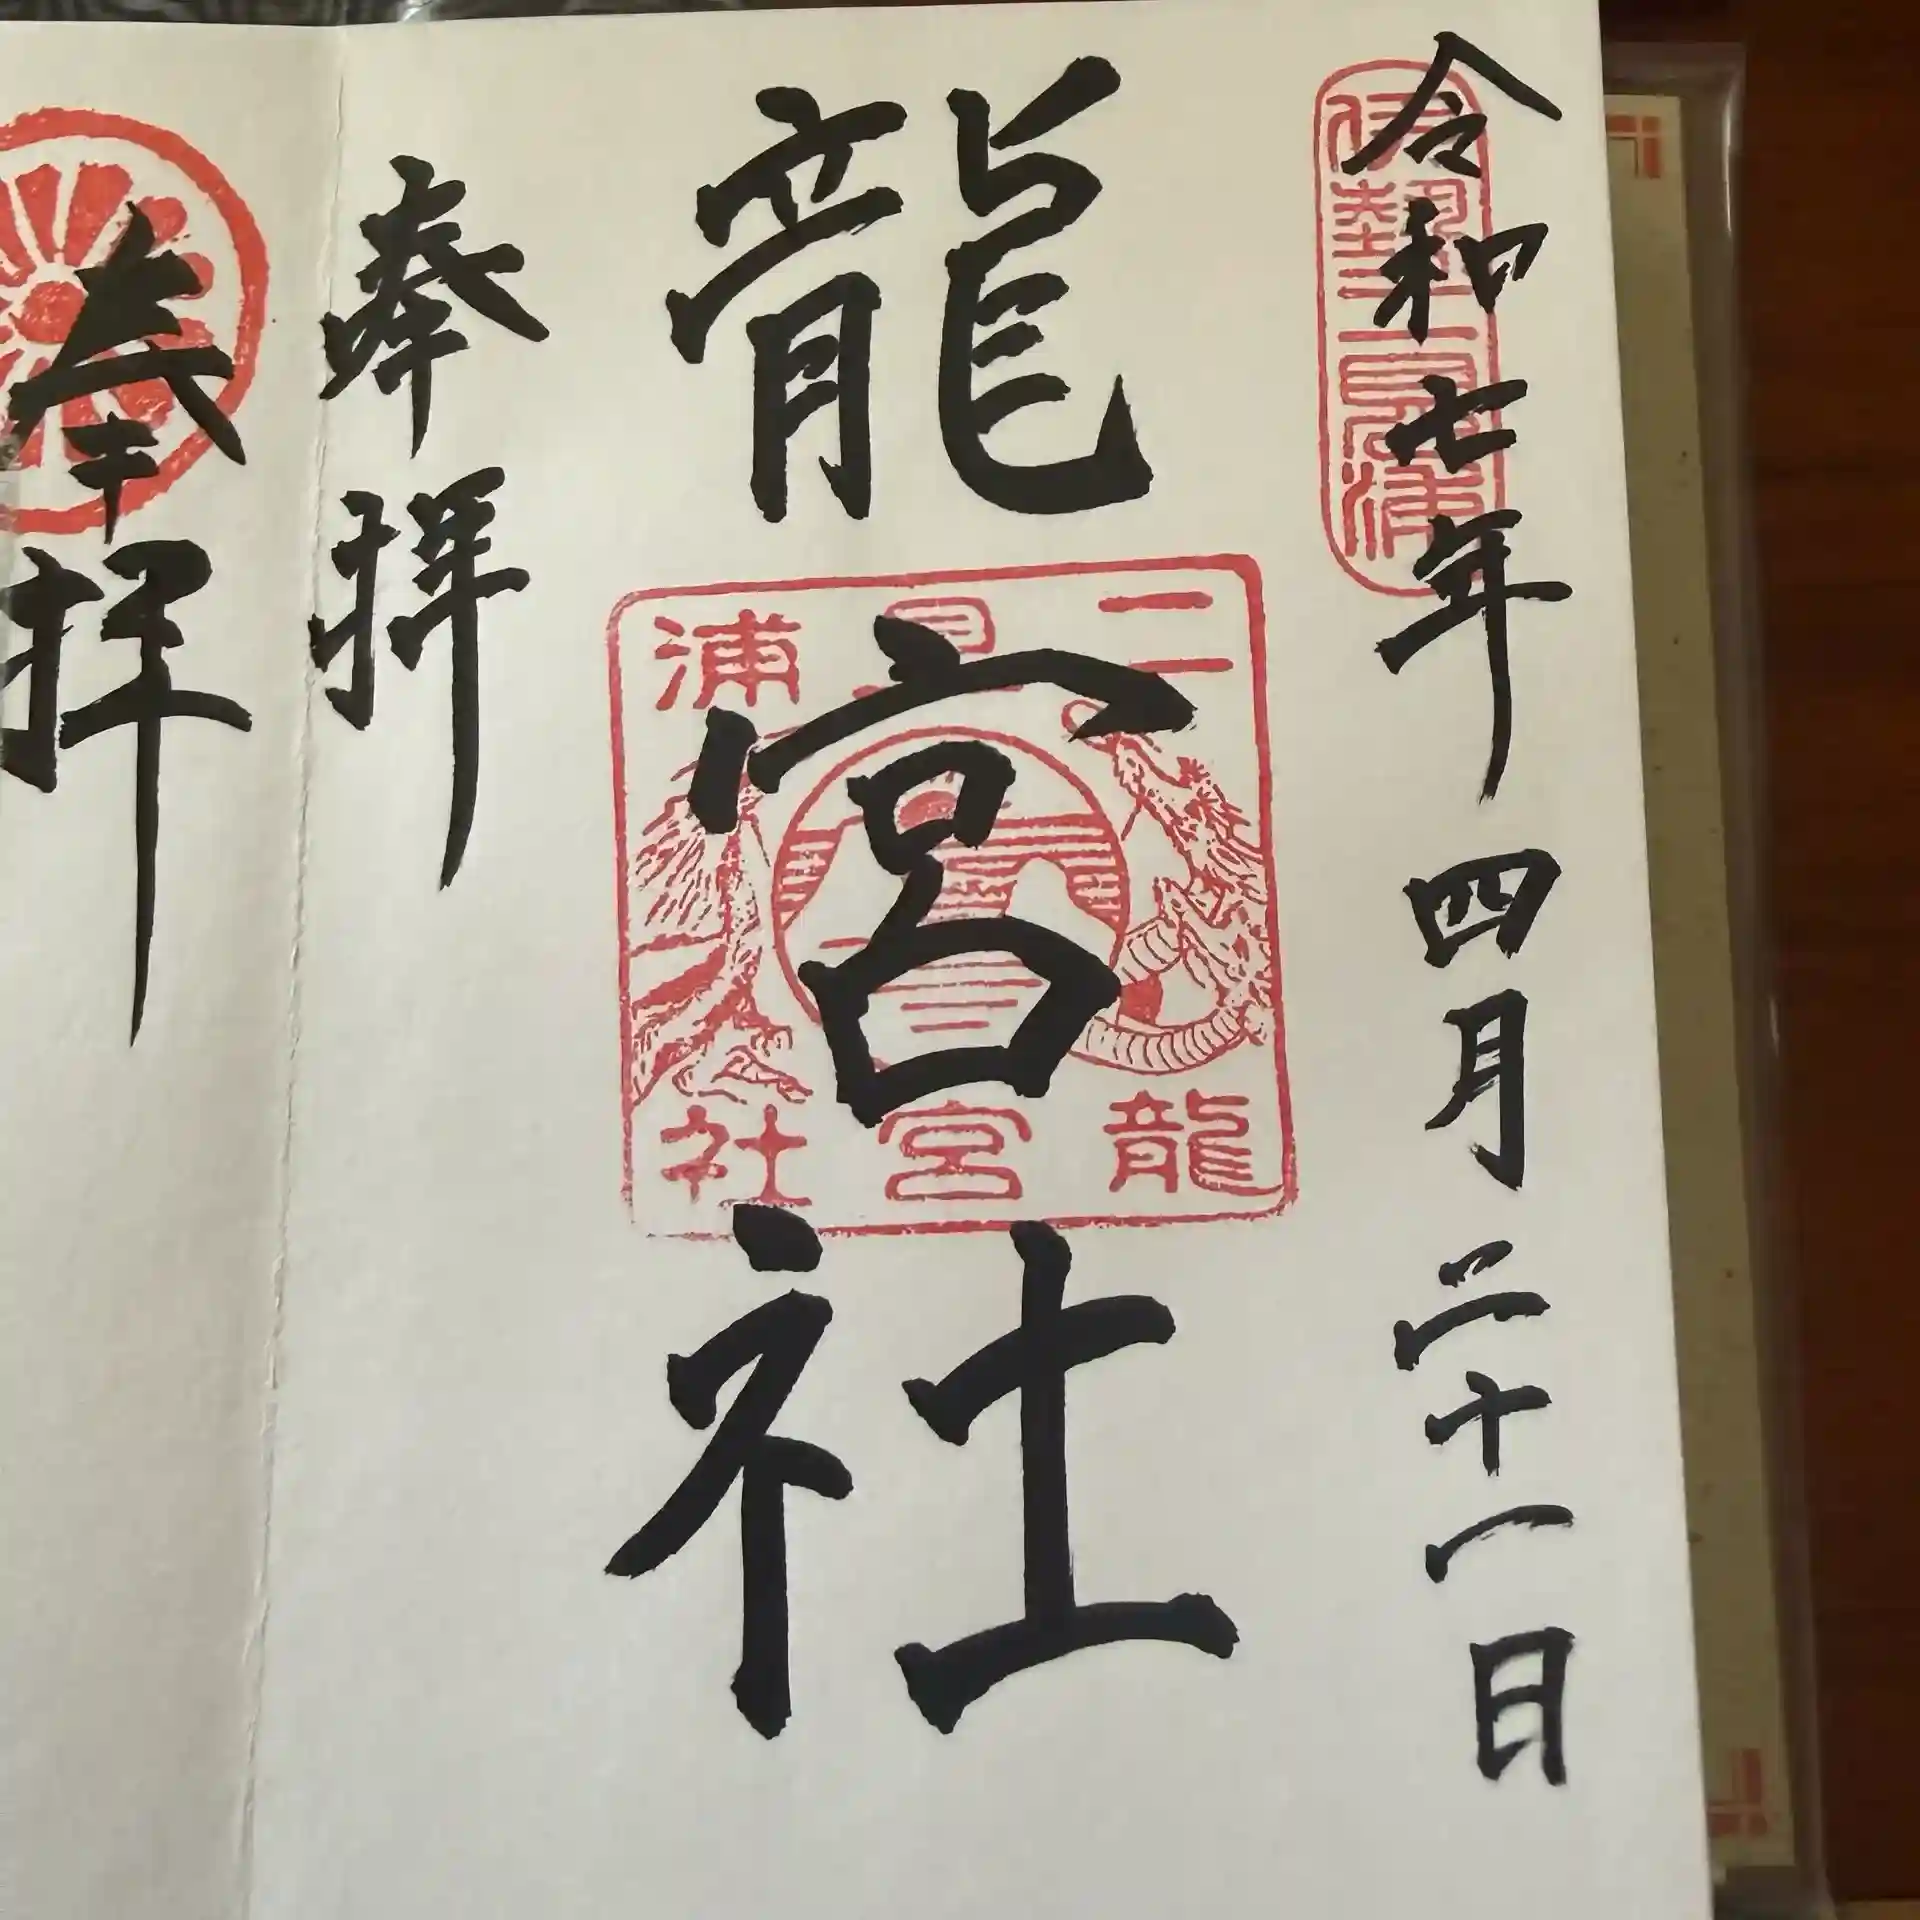 令和七年 四月 二十一日
伊勢二見浦
龍宮社
二見浦
龍宮社
奉拝
奉拝